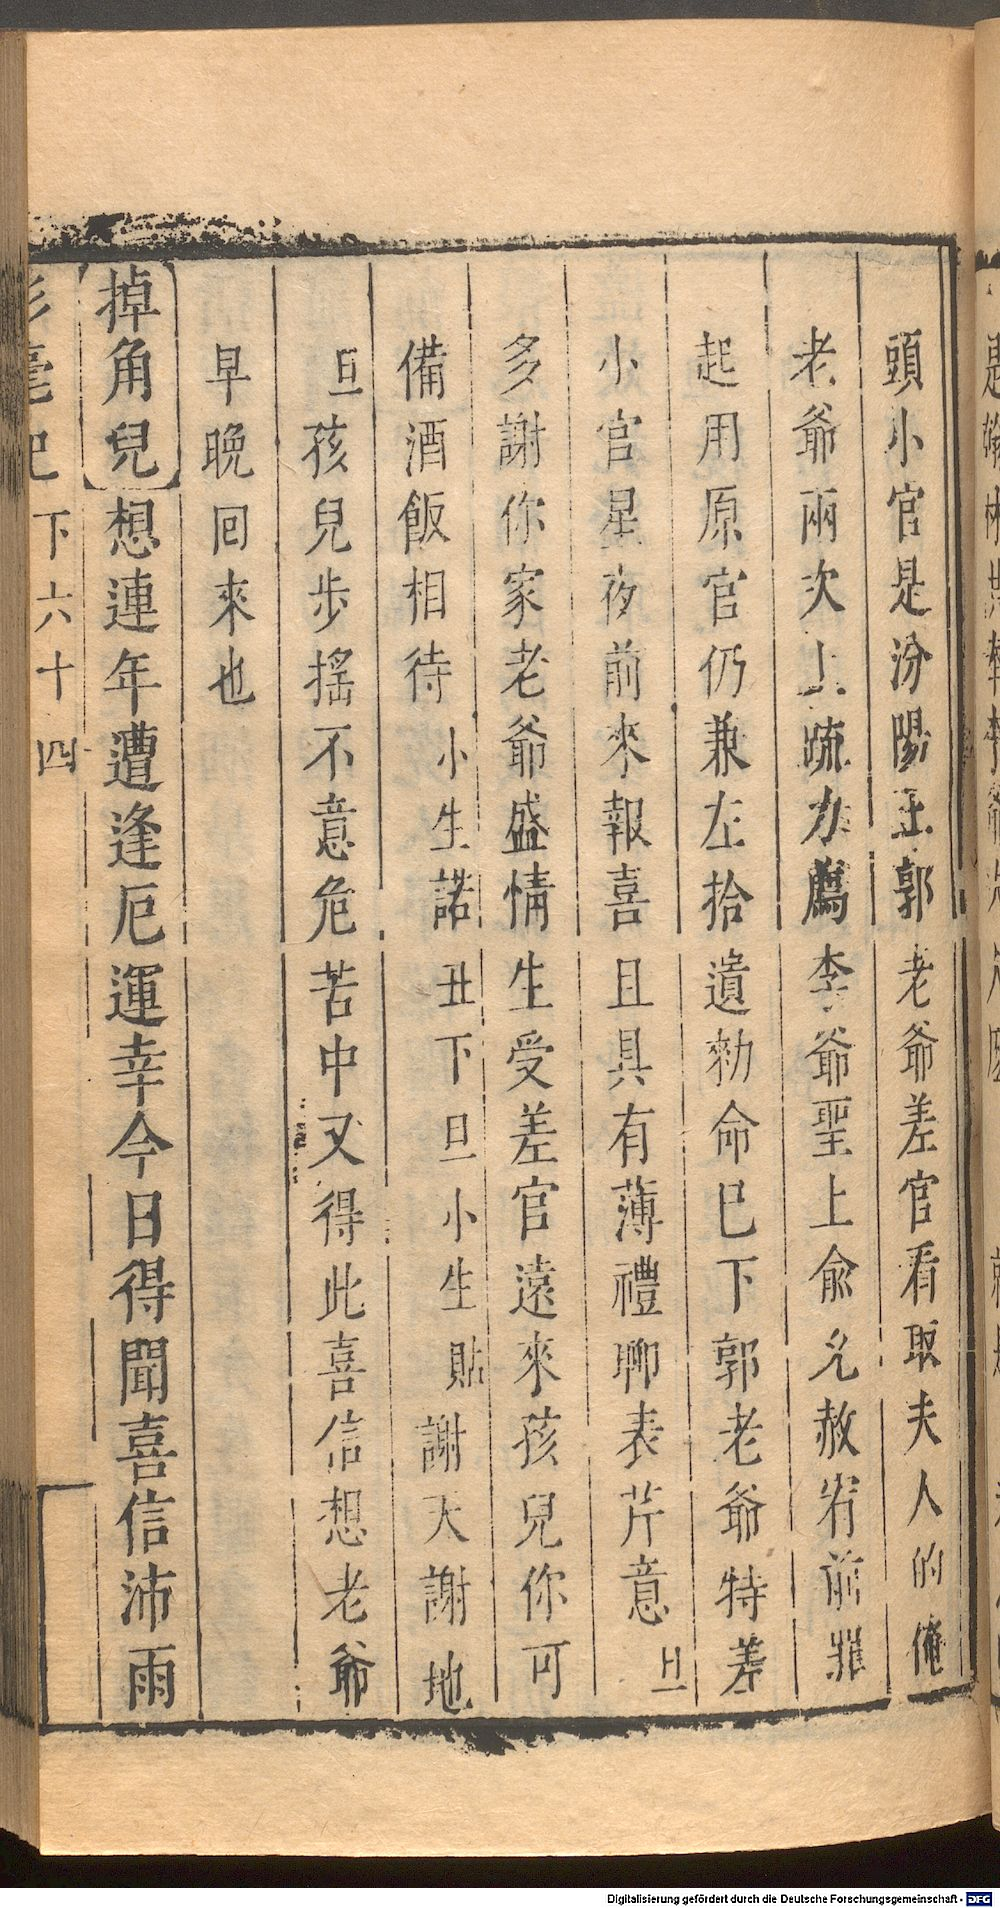 頭小官是汾陽王郭老爺差官看取夫人的俺
老爺兩次上疏力薦李爺聖上俞允赦宥前罪
起用原官仍兼左拾遺勑命已下郭老爺特差
小官星夜前來報喜且具有薄禮聊表芹意旦
多謝你家老爺盛情生受差官遠來孩兒你可
備酒飯相待小生諾丑下旦小生貼謝天謝地
旦孩兒步搖不意危苦中又得此喜信想老爺
早晚回來也
掉角兒想連年遭逢厄運幸今日得聞喜信沛雨
毫記 下六十四
Digitalisierung gefördert durch die Deutsche Forschungsgemeinschaft - DFG